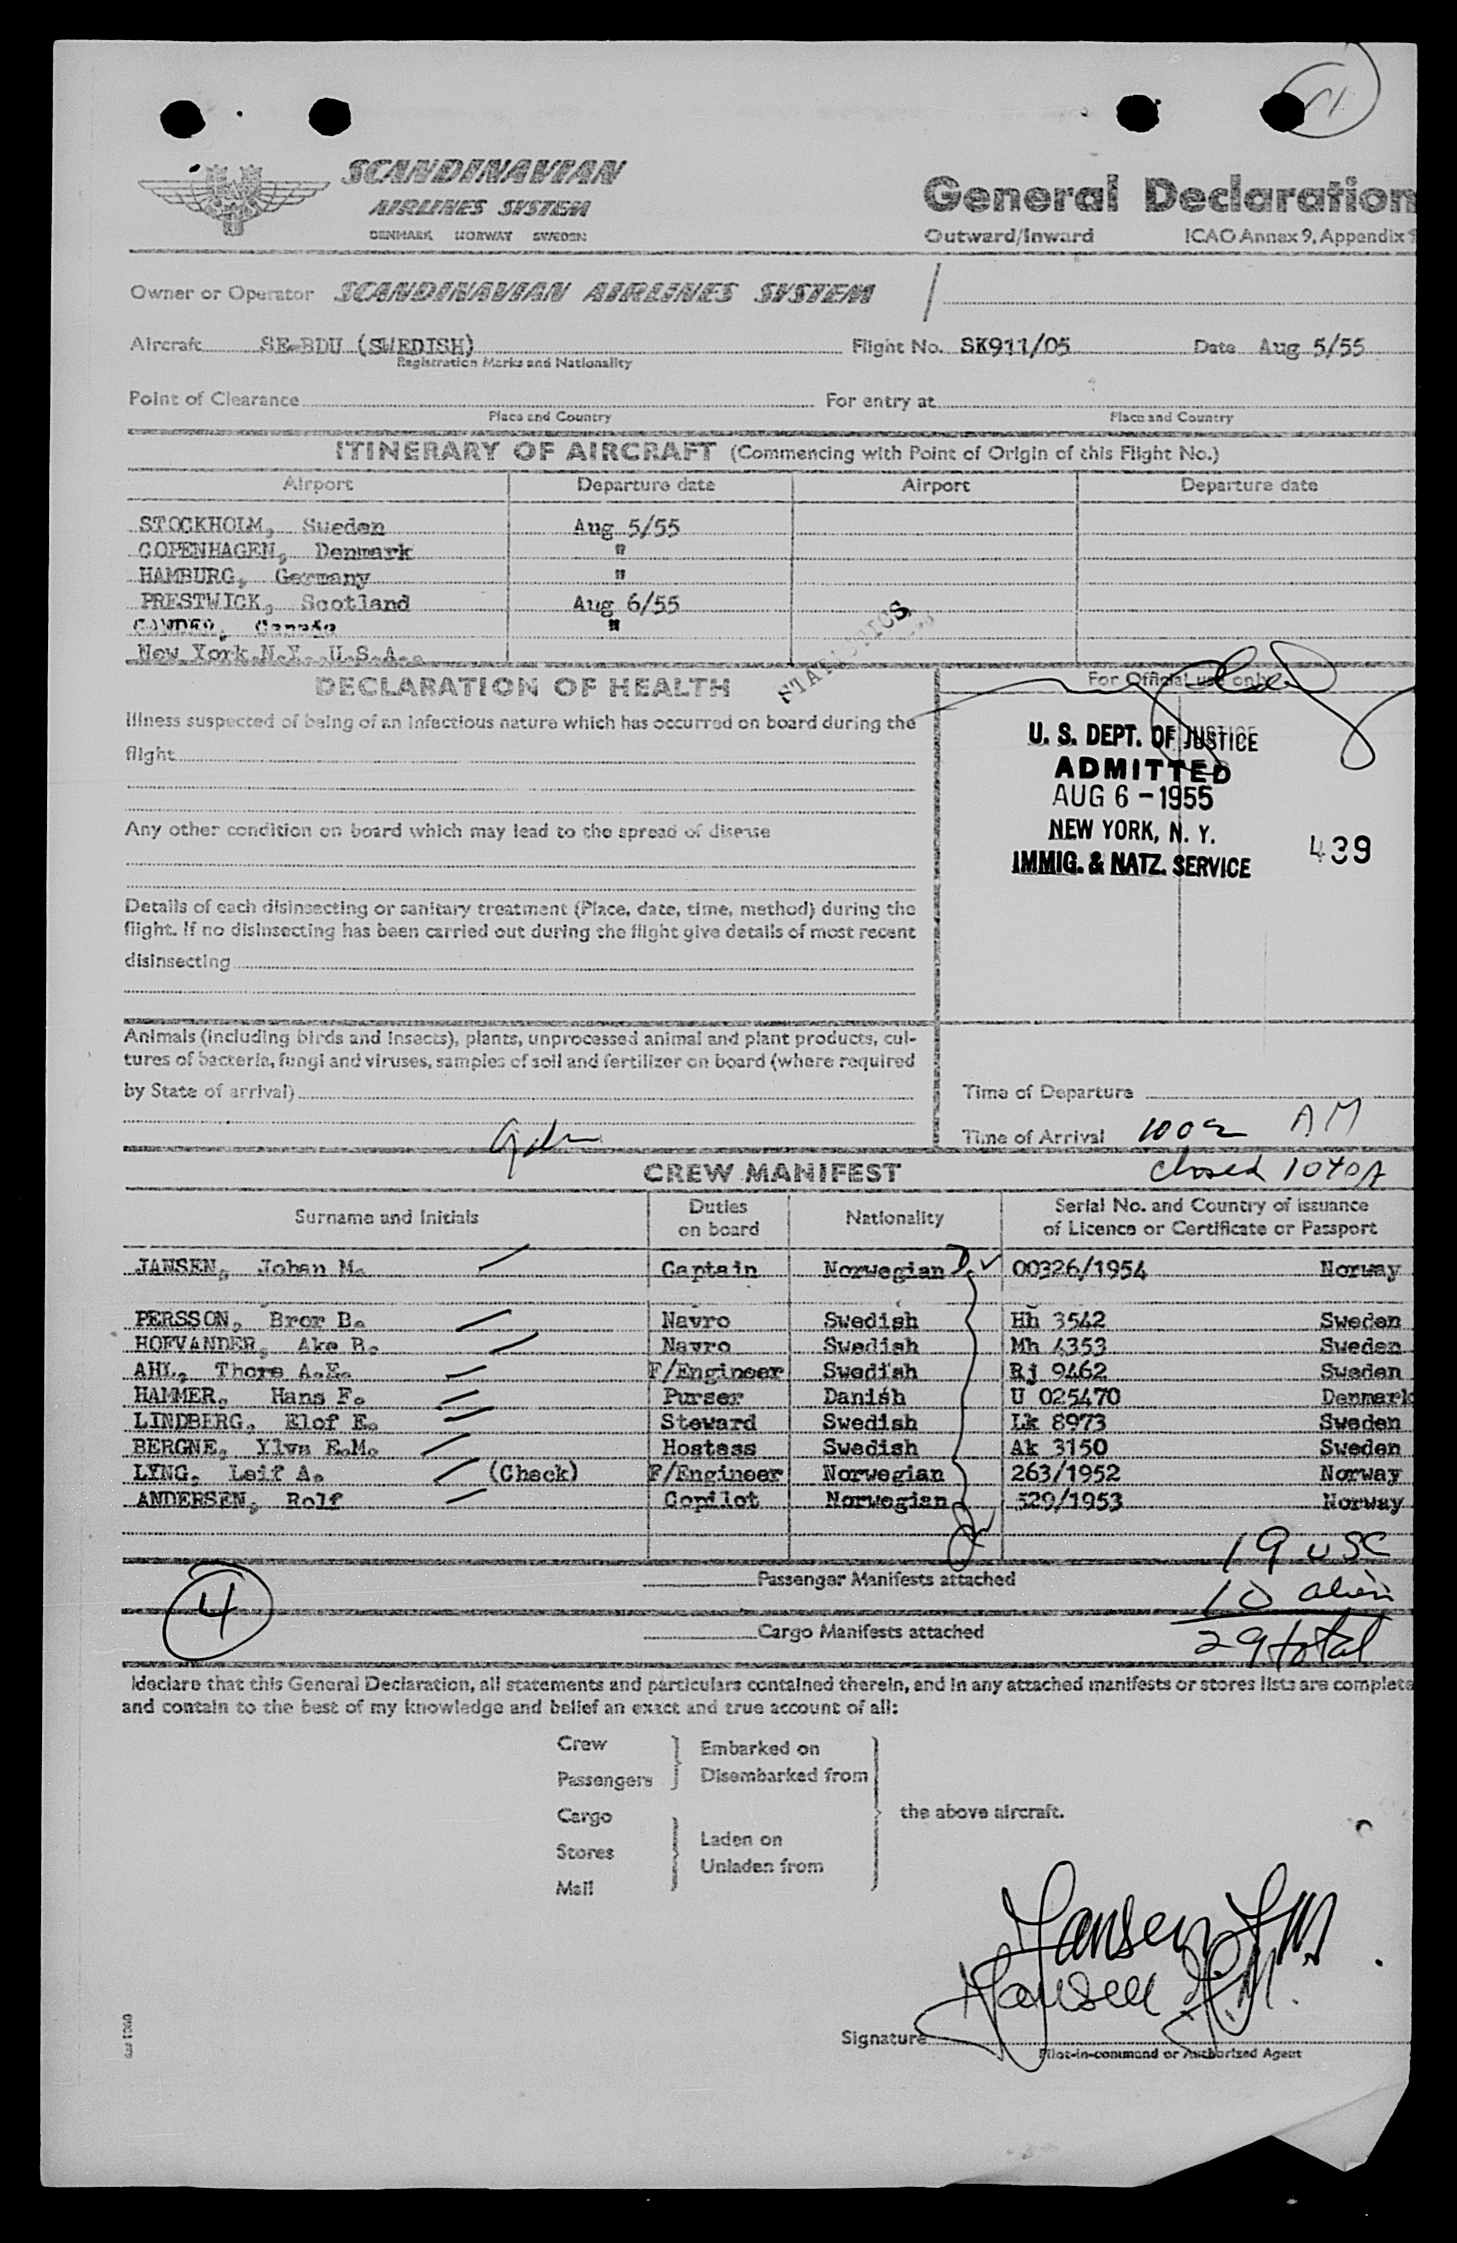 11
SCANDINAVIAN
AIRLINES SYSTEM
DENMARK NORWAY SWEDEN
General Declaration
Outward/Inward ICAO Annex 9, Appendix
Owner or Operator SCANDINAVIAN AIRLINES SYSTEM
Aircraft SE-BDU (SWEDISH) Flight No. SK911/05 Date Aug 5/55
Registration Marks and Nationality
Point of Clearance For entry at
Place and Country Place and Country
ITINERARY OF AIRCRAFT (Commencing with Point of Origin of this Flight No.)
Airport Departure date Airport Departure date
STOCKHOLM, Sweden Aug 5/55
COPENHAGEN, Denmark "
HAMBURG, Germany "
PRESTWICK, Scotland Aug 6/55
GANDER, Canada "
New York.N.Y. U.S.A.
STATISTICS
DECLARATION OF HEALTH
For Official use only
Illness suspected of being of an infectious nature which has occurred on board during the
flight
U. S. DEPT. OF JUSTICE
ADMITTED
AUG 6 - 1955
NEW YORK, N. Y.
IMMIG. & NATZ. SERVICE
439
Any other condition on board which may lead to the spread of disease
Details of each disinsecting or sanitary treatment (Place, date, time, method) during the
flight. If no disinsecting has been carried out during the flight give details of most recent
disinsecting
Animals (including birds and insects), plants, unprocessed animal and plant products, cul-
tures of bacteria, fungi and viruses, samples of soil and fertilizer on board (where required
by State of arrival)
Time of Departure
Time of Arrival 1002 AM
closed 1040A
CREW MANIFEST
Surname and Initials Duties on board Nationality Serial No. and Country of issuance of Licence or Certificate or Passport
JANSEN, Johan M. Captain Norwegian 00326/1954 Norway
PERSSON, Bror B. Navro Swedish Hh 3542 Sweden
HOFVANDER, Ake B. Navro Swedish Mh 4353 Sweden
AHL, Thore A.E. F/Engineer Swedish Rj 9462 Sweden
HAMMER, Hans F. Purser Danish U 025470 Denmark
LINDBERG, Elof E. Steward Swedish Lk 8973 Sweden
BERGNE, Ylva E.M. Hostess Swedish Ak 3150 Sweden
LYNG, Leif A. (Check) F/Engineer Norwegian 263/1952 Norway
ANDERSEN, Rolf Copilot Norwegian 529/1953 Norway
19 USC
Passenger Manifests attached
10 alien
4
Cargo Manifests attached
29 total
I declare that this General Declaration, all statements and particulars contained therein, and in any attached manifests or stores lists are complete
and contain to the best of my knowledge and belief an exact and true account of all:
Crew
Passengers
Embarked on
Disembarked from
Cargo
Stores
Mail
Laden on
Unladen from
the above aircraft.
Jansen J M
Jansen J.M.
Signature
Pilot-in-command or Authorized Agent